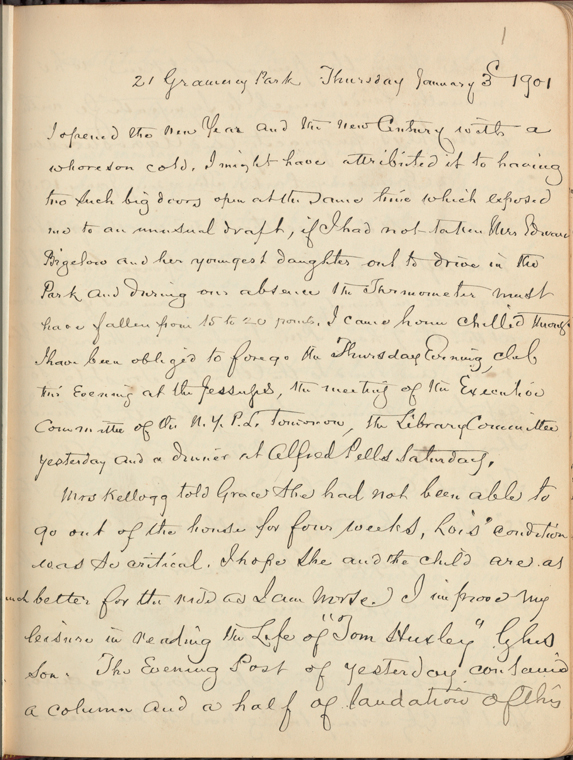 1
21 Gramercy Park Thursday January 3d 1901
I opened the New Year and the new Century with a
whoreson cold. I might have attributed it to having
two such big doors open at the same time which exposed
me to an unusual draft, if I had not taken Mrs
Bigelow and her youngest daughter out to drive in the
Park and during our absence the Thermometer must
have fallen from 15 to 20 points. I came home chilled through
I have been obliged to forego the Thursday Evening club
this Evening at the Jessups, the meeting of the Executive
Committee of the N.Y.P.L. tomorrow, the Library Committee
yesterday and a dinner at Alfred Pells Saturday.
Mrs Kellogg told Grace she had not been able to
go out of the house for four weeks, Lois' condition
was so critical. I hope she and the child are as
much better for the ride as I am worse. I improve my
leisure in reading the Life of "Tom Huxley" by his
son. The Evening Post of yesterday contained
a column and a half of laudation of this